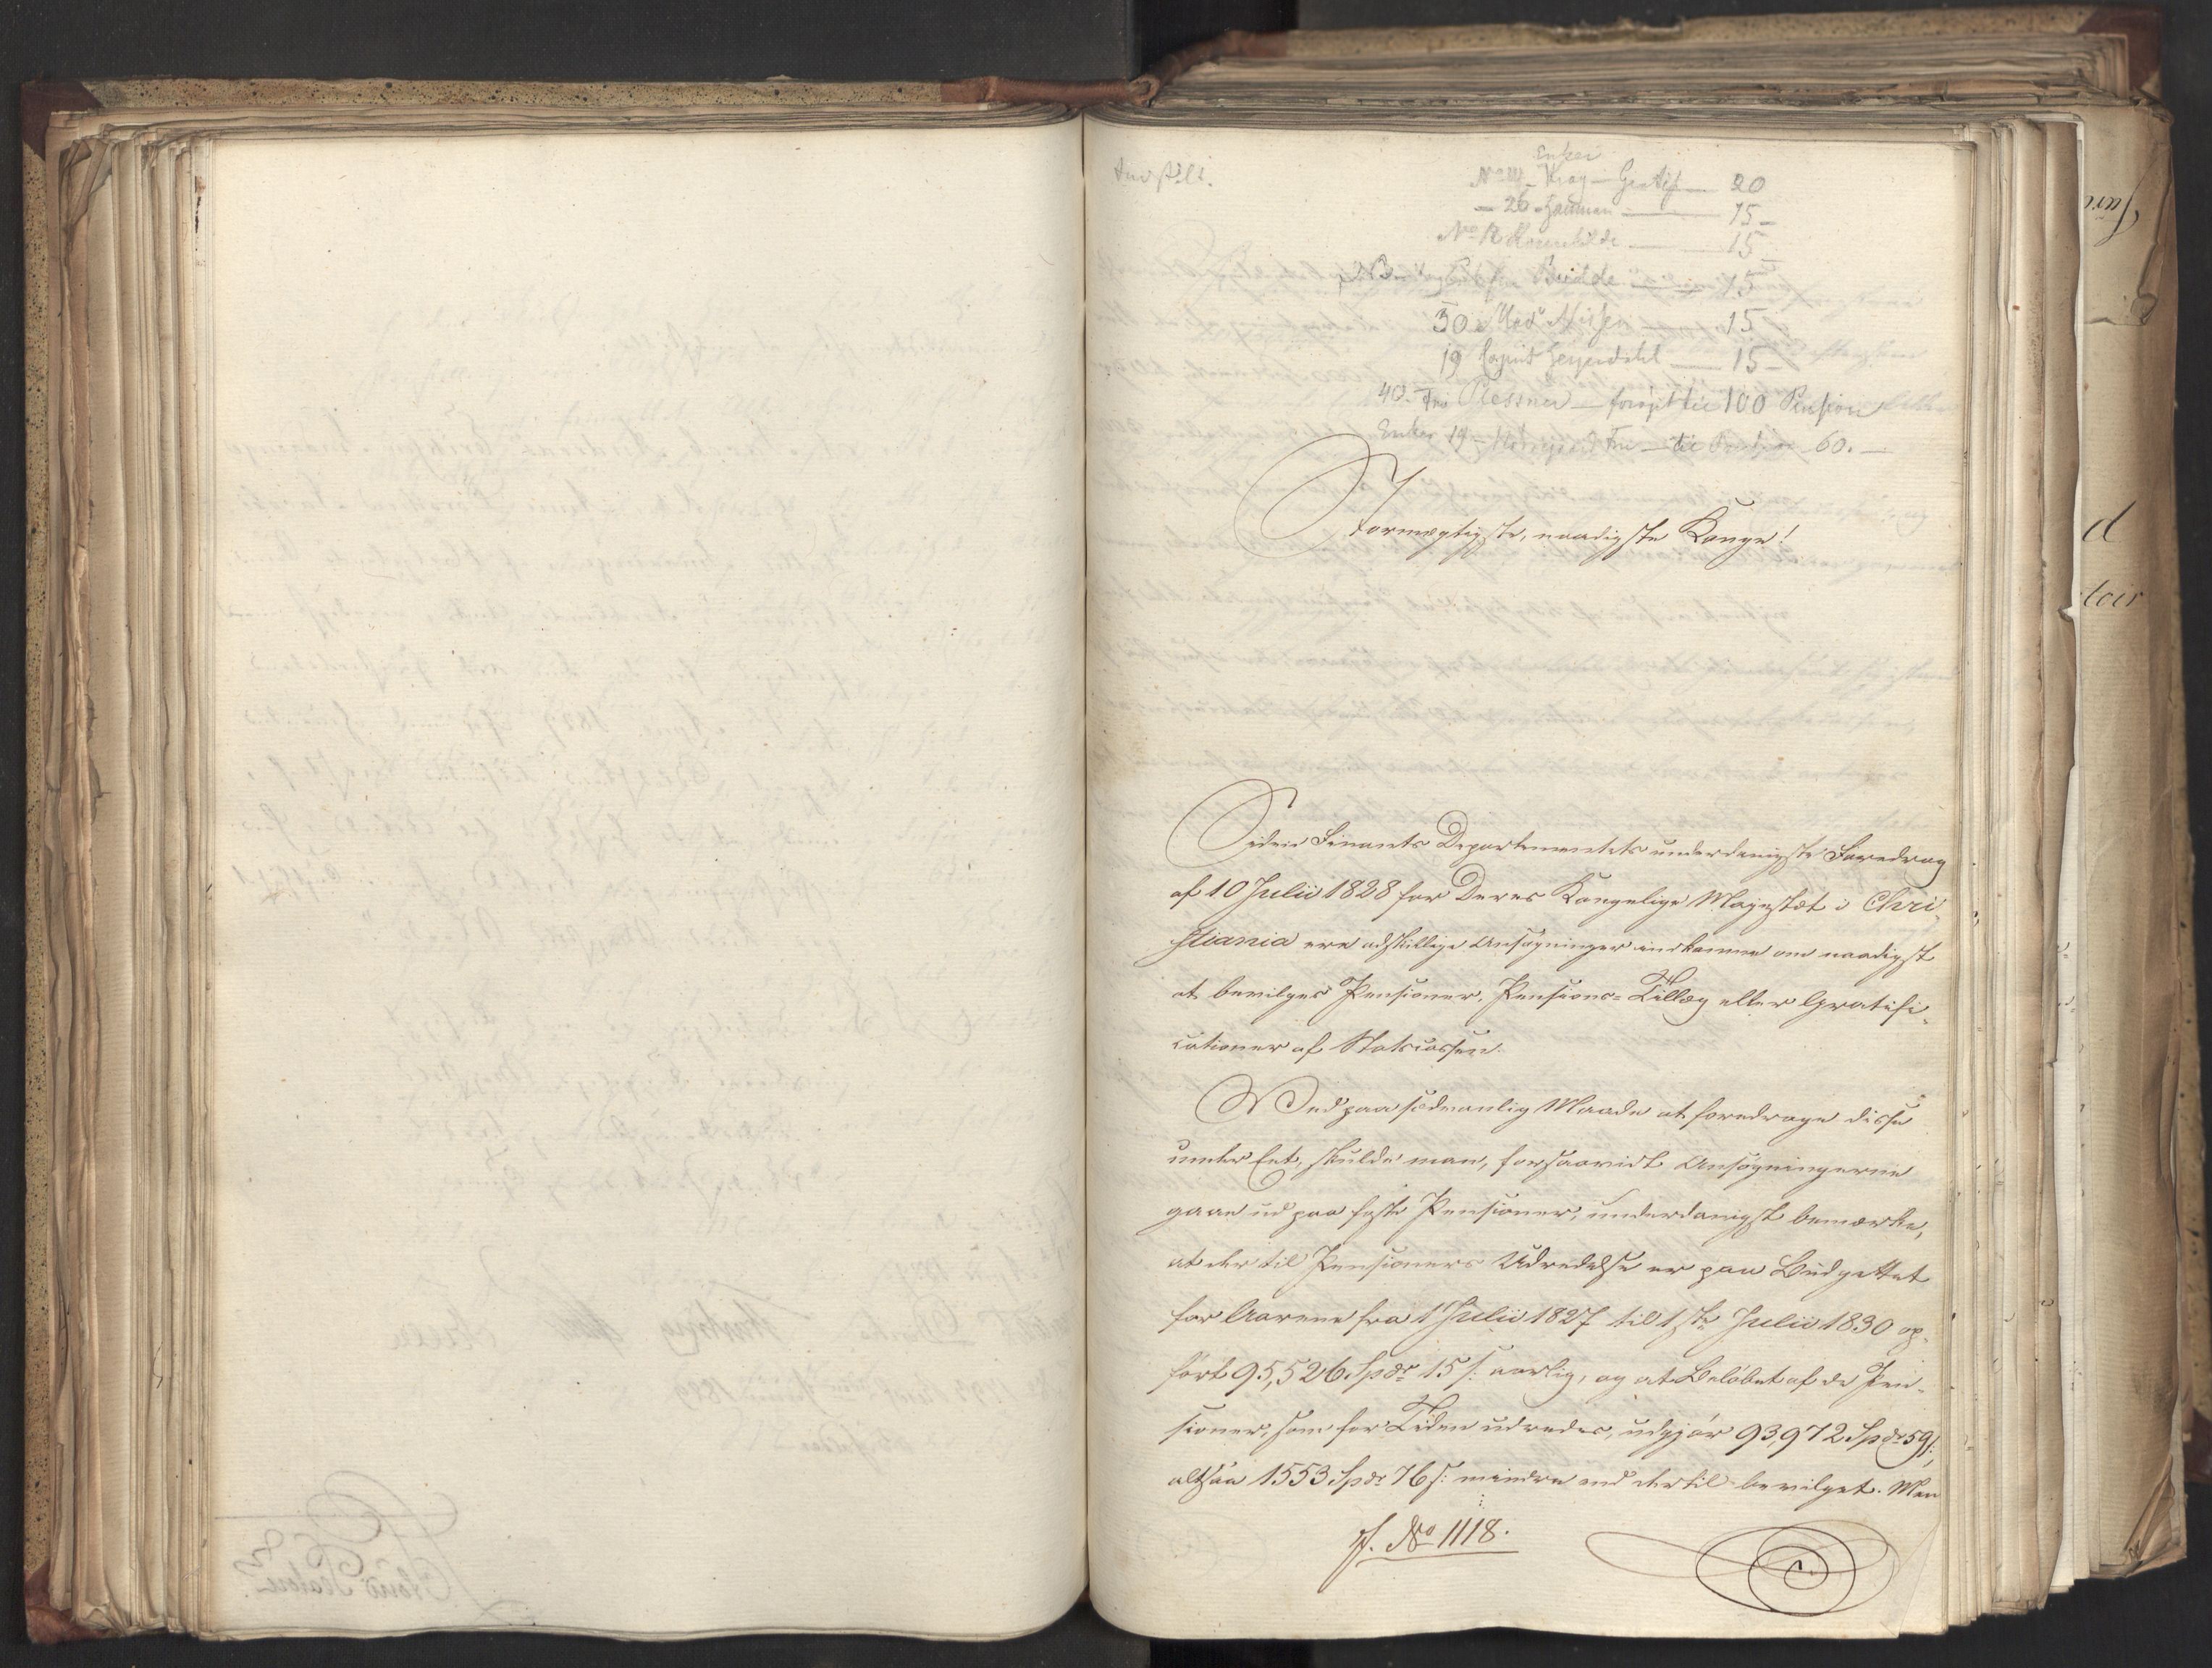 Enker
Krag — Gratif — 20
— 26 — Hammer — 15 —
No 12 — 15
23 — Budde — 15
30. Mad. Nissen — 15
19 Capit Heyerdahl — 15 —
40. Fru Plessner — forhøiet til 100 Pension
Enker 19 — Fru — til Pension 60. —
Stormægtigste, naadigste Konge!
Siden Finants Departementets underdanigste Foredrag
af 10 Julii 1828 for Deres Kongelige Majestæt i Chri-
stiania ere adskillige Ansøgninger indkomne om naadigst
at bevilges Pensioner, Pensions-Tillæg eller Gratifi-
cationer af Statscassen.
Ved paa sædvanlig Maade at foredrage disse
under Eet, skulde man, forsaavidt Ansøgningerne
gaae ud paa faste Pensioner, underdanigst bemærke,
at der til Pensioners Udredelse er paa Budgettet
for Aarene fra 1 Julii 1827 til 1ste Julii 1830 op-
ført 95,526 Spdr 15 s: aarlig, og at Beløbet af de Pen-
sioner, som for Tiden udredes, udgjør 93,972 Spdr 59 s:,
altsaa 1553 Spdr 76 s: mindre end dertil bevilget. Men
J. No 1118.